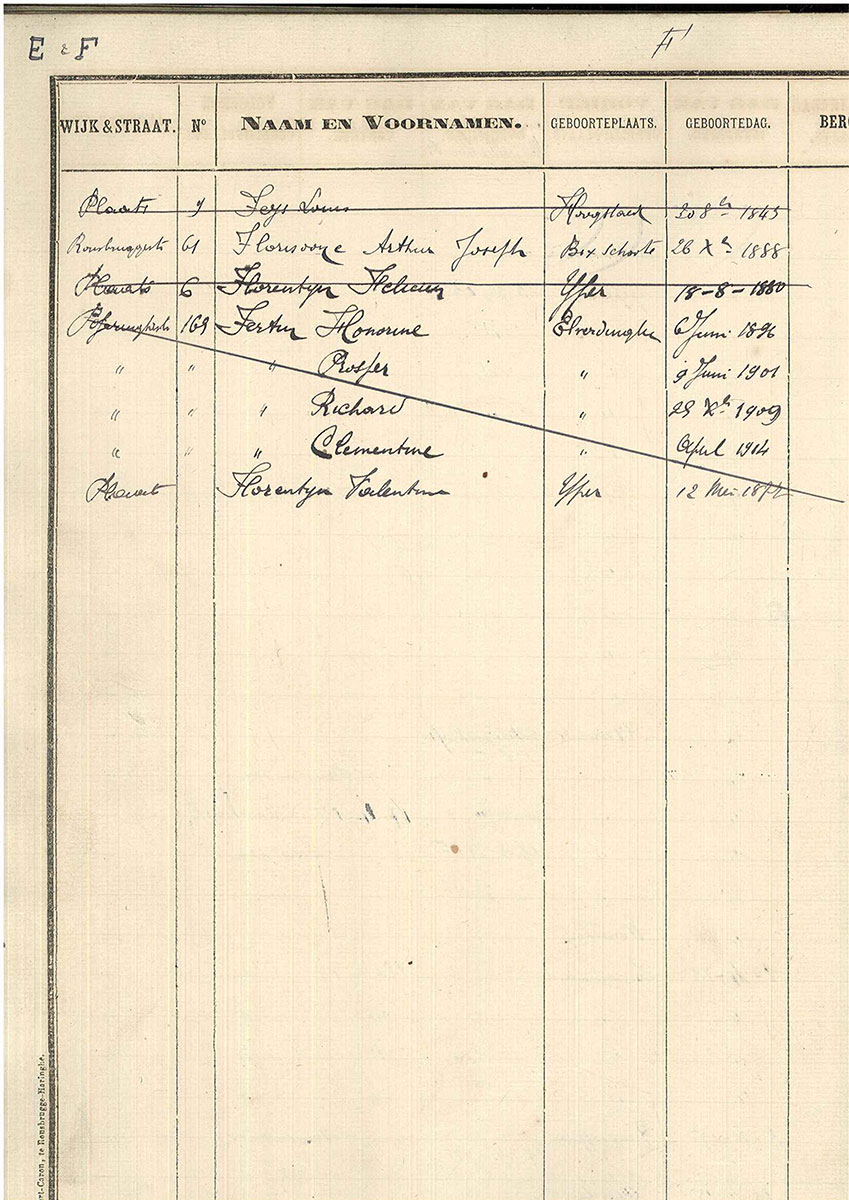 E & F F
WIJK & STRAAT. No NAAM EN VOORNAMEN. GEBOORTEPLAATS. GEBOORTEDAG. BERO
Plaats 9 Feys Louis Hoogstade 20 8er 1845
Rousbruggestr 61 Florisoone Arthur Joseph Boxschoote 26 Xer 1888
Plaats 6 Florentyn Yper 18-8-1880
169 Fertin Honorine Elverdinghe 6 Juni 1896
" " " Prosper " 9 Juni 1901
" " " Richard " 29 Xer 1909
" " " Clementine " April 1914
Plaats Florentyn Valentine Yper 12 Mei
rt-Caron, te Rousbrugge-Haringhe.